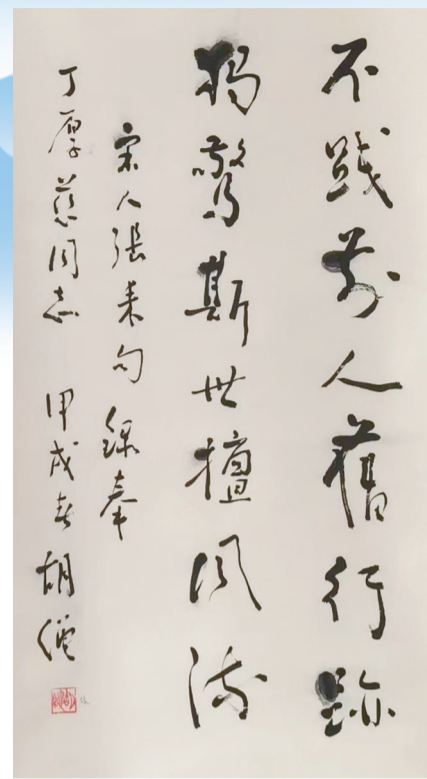 不踐前人舊行跡
獨驚斯世擅風流
宋人張耒句 錄奉
丁厚慈同志 甲戌春 胡繩